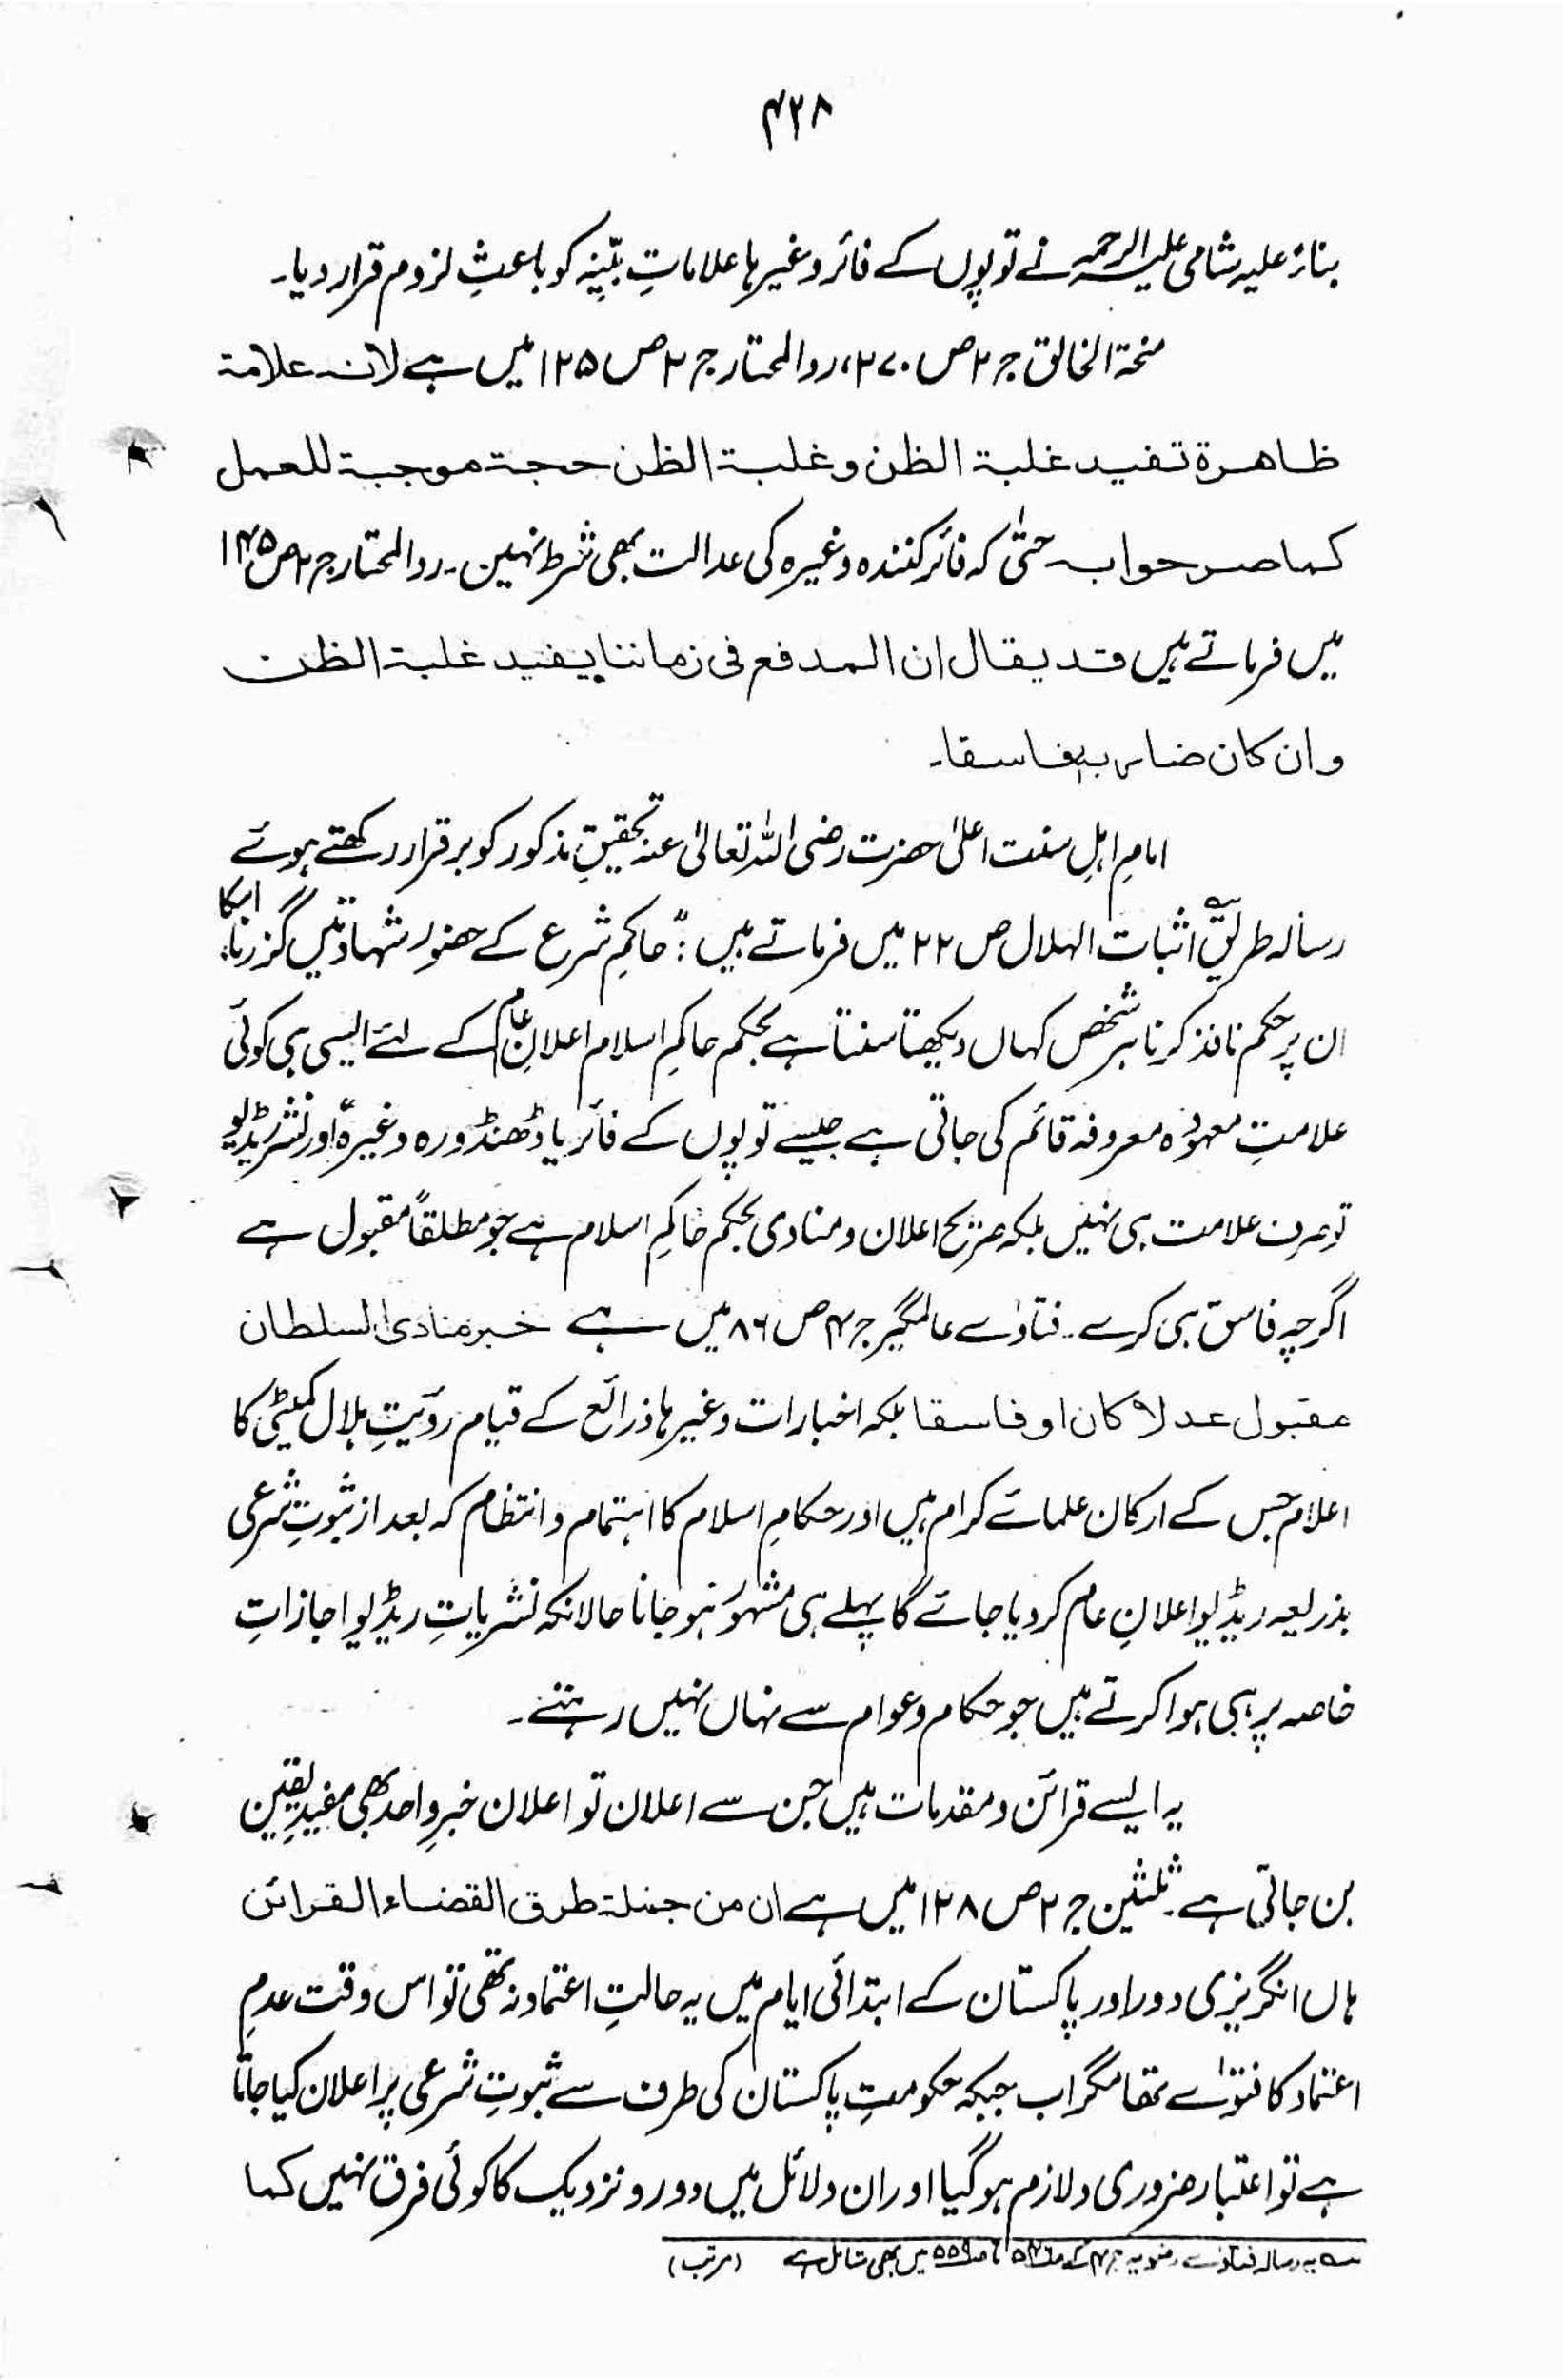 ۴۲۸
بناءً علیہ شامی علیہ الرحمہ نے توپوں کے فائر وغیرہا علاماتِ بیّنہ کو باعثِ لزوم قرار دیا۔
منحۃ الخالق ج ۲ ص ۲۷۰، ردالمحتار ج ۲ ص ۱۲۵ میں ہے لانہ علامۃ
ظاهرة تفید غلبۃ الظن وغلبۃ الظن حجۃ موجبۃ للعمل
کما صرحوا بہ حتّٰی کہ فائر کنندہ وغیرہ کی عدالت بھی شرط نہیں۔ ردالمحتار ج ۲ ص ۱۴۵
میں فرماتے ہیں قد یقال ان المدفع فی زماننا یفید غلبۃ الظن
وان کان ضاربہ فاسقا۔
امامِ اہلِ سنت اعلیٰ حضرت رضی اللہ تعالیٰ عنہ تحقیقِ مذکور کو برقرار رکھتے ہوئے
رسالہ طریقِ اثبات الہلال ص ۲۲ میں فرماتے ہیں : "حاکمِ شرع کے حضور شہادتیں گزرنا، انکا
ان پر حکم نافذ کرنا ہر شخص کہاں دیکھتا سنتا ہے بحکم حاکمِ اسلام اعلانِ عام کے لئے ایسی ہی کوئی
علامتِ معہودہ معروفہ قائم کی جاتی ہے جیسے توپوں کے فائر یا ڈھنڈورہ وغیرہ" اور نشر ریڈیو
تو صرف علامت ہی نہیں بلکہ صریح اعلان و منادی بحکم حاکمِ اسلام ہے جو مطلقاً مقبول ہے
اگرچہ فاسق ہی کرے۔ فتاوٰے عالمگیر ج ۴ ص ۸۶ میں ہے خبر منادی السلطان
مقبول عدلا کان او فاسقا بلکہ اخبارات وغیرہا ذرائع کے قیام رویَتِ ہلال کمیٹی کا
اعلام جس کے ارکان علمائے کرام ہیں اور حکامِ اسلام کا اہتمام و انتظام کہ بعد از ثبوتِ شرعی
بذریعہ ریڈیو اعلانِ عام کر دیا جائے گا پہلے ہی مشہور ہو جانا حالانکہ نشریاتِ ریڈیو اجازاتِ
خاصہ پر ہی ہوا کرتے ہیں جو حکام و عوام سے نہاں نہیں رہتے۔
یہ ایسے قرائن و مقدمات ہیں جن سے اعلان تو اعلان خبرِ واحد بھی مفیدِ یقین
بن جاتی ہے۔ ثلثین ج ۲ ص ۱۲۸ میں ہے ان من جملۃ طرق القضاء القرائن
ہاں انگریزی دور اور پاکستان کے ابتدائی ایام میں یہ حالتِ اعتماد نہ تھی تو اس وقت عدمِ
اعتماد کا فتوٰے تھا مگر اب جبکہ حکومتِ پاکستان کی طرف سے ثبوتِ شرعی پر اعلان کیا جاتا
ہے تو اعتبار ضروری و لازم ہو گیا اور ان دلائل میں دور و نزدیک کا کوئی فرق نہیں کما
یہ رسالہ فتاوٰے رضویہ ج ۴ کے ص ۵۴۶ تا ص ۵۵۹ میں بھی شامل ہے (مرتب)